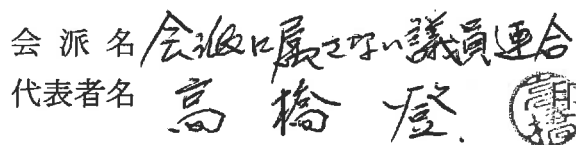 会派名 会派に属さない議員連合
代表者名 高橋 登